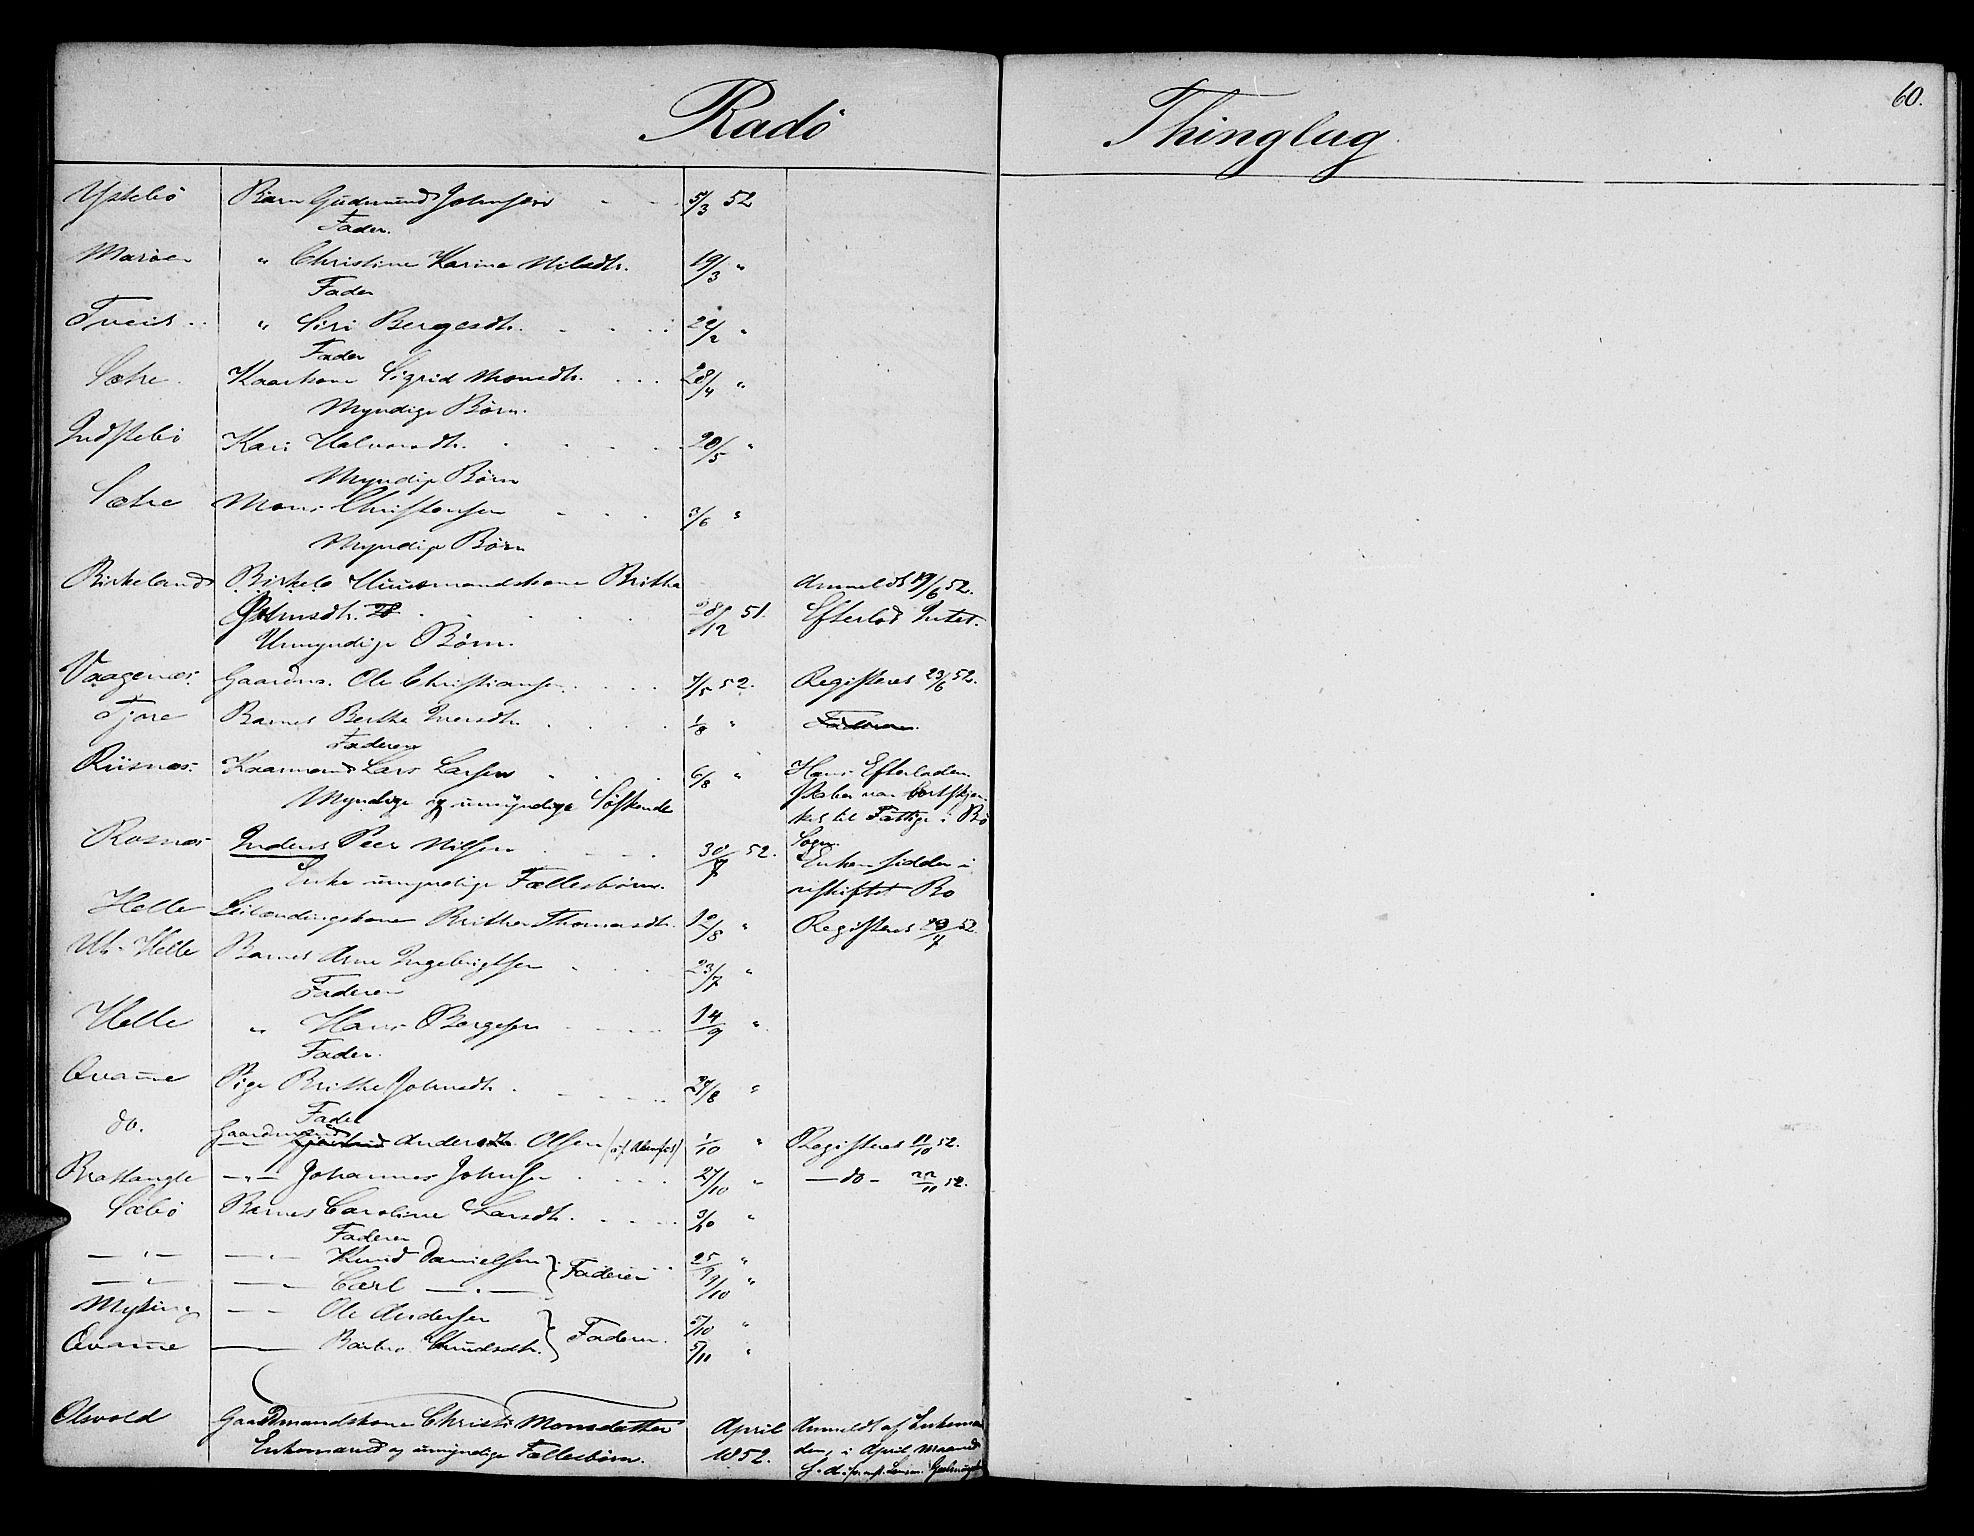 Radö Thinglag
60.
Ystebö Barn Gudmund Johnsen 5/3 52
Fader.
Marøen " Christine Karine Nilsdtr. 19/3 "
Fader
Tveit " Siri Bergesdtr. 22/2 "
Fader
Sætre Kaarkone Sigrid Monsdtr. 28/4 "
Myndige Börn.
Indstebö Kari Halvorsdtr. 20/5 "
Myndige Börn
Sætre Mons Christensen 3/6 "
Myndige Börn
Birkeland Birkelo Huusmandskone Britha Anmeldt 19/6 52.
Johnsdtr. 28/12 51. Efterlod Intet.
Umyndige Börn.
Vaagenes Gaardm. Ole Christiansen 7/5 52. Registeret 23/6 52.
Tjore Barnet Berthe Iversdtr. 1/8 "
Faderen
Riisnes Kaarmand Lars Larsen 6/8 " Hans Efterladen
Myndige og umyndige Söskende skaber var bortskjen
ket til Fattige i Bö
Rosnes Inderst Peer Nilsen 30/7 52. Sogn.
Enken sidder i
Enke umyndige Fællesbörn. uskiftet Bo
Helle Leilændingskone Brithe Thomasdtr. 12/8 " Registeret 29/7 52.
Ut-Helle Barnet Arne Ingebrigtsen 23/7 "
Faderen
Helle " Hans Bergesen 14/9 "
Fader.
Qvamme Pige Brithe Johnsdtr. 27/8 "
Fader
do. Gaardmand Anders Olsen 1/10 " Registeret 11/10 52.
Brattangle —"— Johannes Johnsen 27/10 " —do— 22/11 52.
Sæbö Barnet Caroline Larsdtr. 3/10 "
Faderen
—"— —"— Knud Danielsen } Faderen 25/9 "
—"— —"— Carl —"— 9/10 "
Myking —"— Ole Andersen } Faderen 5/10 "
Qvamme —— Barbro Knudsdtr. 5/11 "
Olsvold Gaardmandskone Christi Monsdatter April Anmeldt af Enkeman
Enkemand og umyndige Fællesbörn. 1852. den i April Maaned